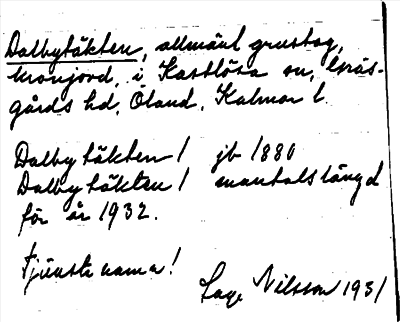 Dalbytäkten, allmänt grustag,
kronjord, i Kastlösa sn, Gräs-
gårds hd, Öland, Kalmar l.
Dalbytäkten / jb 1880
Dalbytäkten / mantalslängd
för år 1932.
Tjänstenamn!
Lage Nilsson 1931